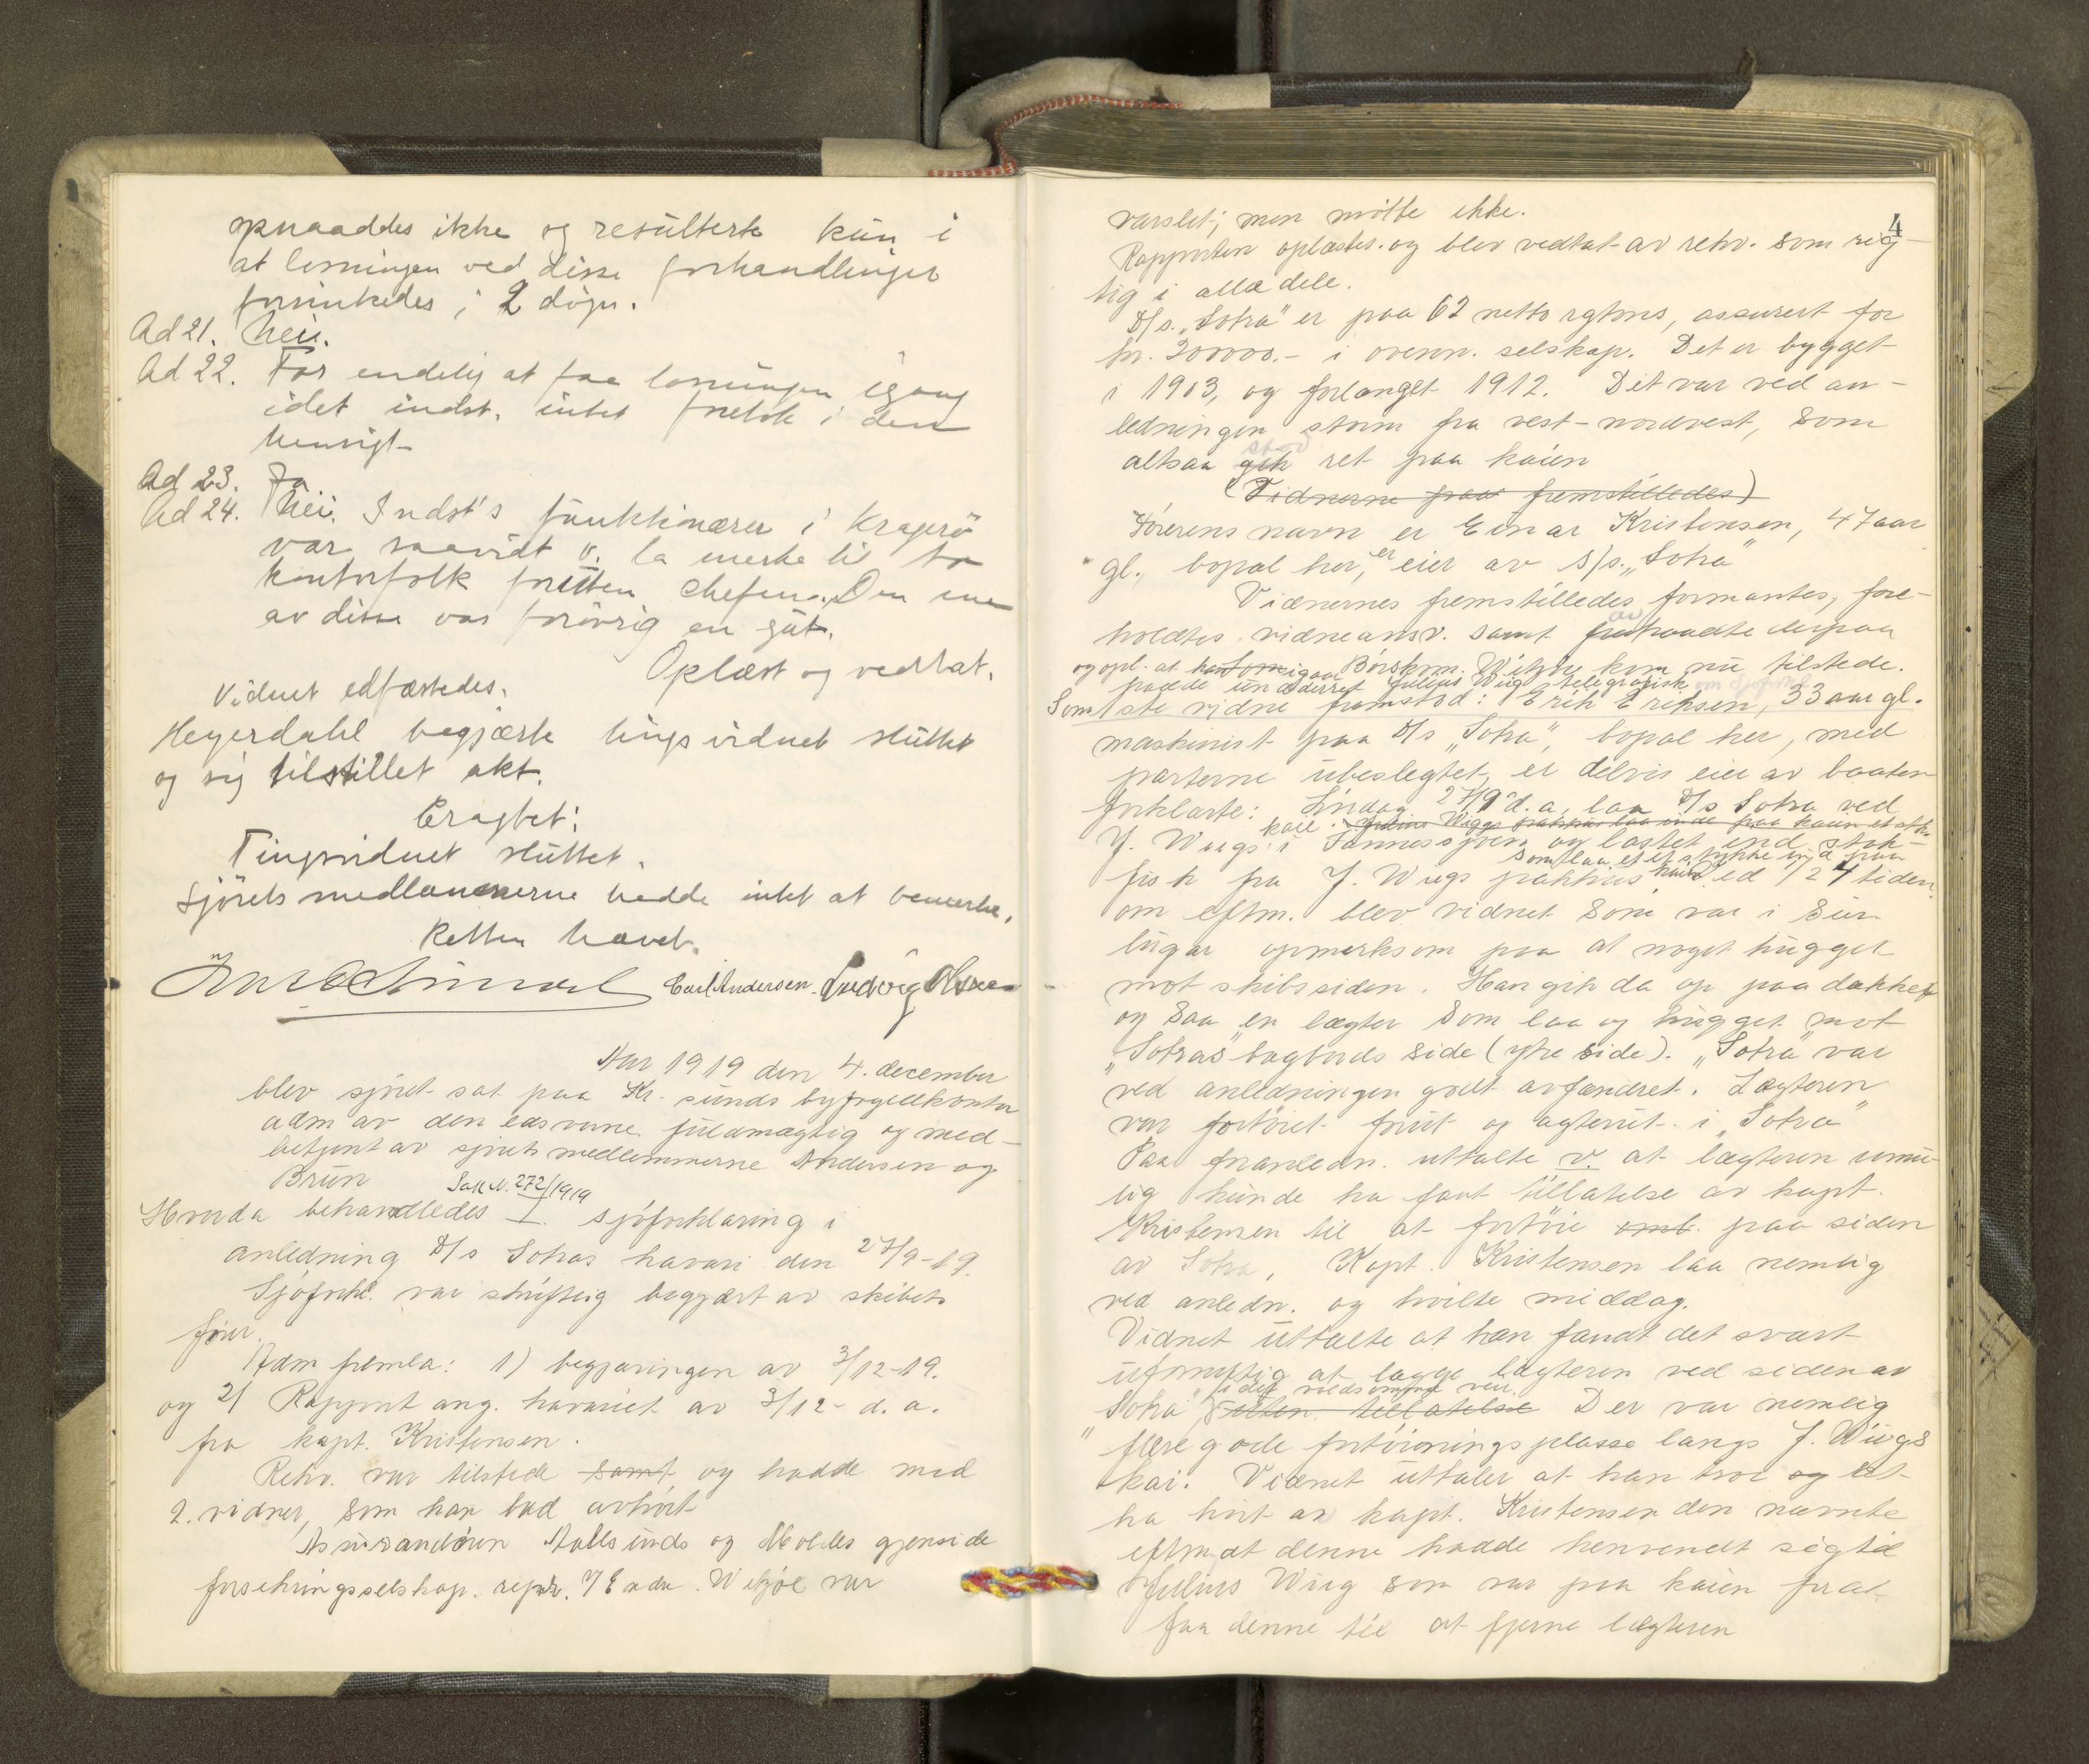 opnaaddes ikke og resulterte kun i
at losningen ved disse forhandlinger
forsinkedes i 2 døgn.
Ad 21. Nei.
Ad 22. For endelig at faa losningen igang
idet indst. intet foretok i den
hensigt
Ad 23. Ja
Ad 24. Nei. Indst's funktionærer i Kragerø
var saavidt v. la merke til to
kontorfolk foruten chefen. Den ene
av disse var forøvrig en gut.
Oplæst og vedtat.
Vidnet edfæstedes.
Heyerdahl begjærte tingsvidnet sluttet
og sig tilstillet akt.
Eragtet:
Tingsvidnet sluttet.
Sjørets medlemmerne hadde intet at bemerke.
Retten hævet.
Carl Andersen. Ludvig Olsen
Aar 1919 den 4. december
blev sjøret sat paa Kr.sunds byfogedkontor
adm av den edsvorne fuldmægtig og med-
betjent av sjøretsmedlemmerne Andersen og
Brun
Sak N. 272/1919
Hvorda behandledes I. sjøforklaring i
anledning D/s Sotras havari den 27/9-19.
Sjøforkl. var skriftlig begjært av skibets
fører.
Adm fremla: 1) begjæringen av 3/12-19.
og 2) Rapport ang. havariet av 3/12- d.a.
fra kapt. Kristensen.
Rekv. var tilstede samt og hadde med
2. vidner, som han bad avhørt
Assurandøren Aalesunds og Moldes gjenside
forsikringsselskap. repr. v/ Eada. Witzøe var
4
varslet; men møtte ikke.
Rapporten oplæstes. og blev vedtat av rekv. som rig-
tig i alle dele.
D/s. "Sotra" er paa 62 netto rgtons, assurert for
kr. 200000.- i ovenn. selskap. Det er bygget
i 1903, og forlænget 1912. Det var ved an-
ledningen storm fra vest-nordvest, som
stod
altsaa gik ret paa kaien
(Vidnerne paa fremstilledes)
Førerens navn er Einar Kristensen, 47 aar
gl., bopæl her, er eier av S/s. "Sotra"
Vidnernes fremstilledes formantes, fore-
av
holdtes vidneansv. samt forhaandte derpaa
og opl. at han som igaar Børskom. Witzøe kom nu tilstede.
hadde underret Julius Wiig telegrafisk om sjøforkl.
Som 1ste vidne fremstod: Erik Eriksen, 33 aar gl.
maskinist paa D/s "Sotra", bopæl her, med
parterne ubeslegtet, er delvis eier av baaten
forklarte: Lørdag 27/9 d.a, laa D/s Sotra ved
kaie. Julius Wiigs pakhus laa inde paa kaien et stk.
J. Wiigs i Vannesøyren og lastet ind stok-
som laa et et stykke ind paa
fisk fra J. Wiigs pakhus kaien ved 1/2 4 tiden
om eftm. blev vidnet som var i sin
lugar opmerksom paa at noget hugget
mot skibssiden. Han gik da op paa dækket
og saa en lægter som laa og hugget mot
"Sotras" bagbords side (ytre side). "Sotra" var
ved anledningen godt avfendret. Lægteren
var fortøiet forut og agterut i "Sotra"
Paa foranledn. uttalte v. at lægteren umu-
lig kunde ha faat tillatelse av kapt.
Kristensen til at fortøie omb. paa siden
av Sotra, Kapt. Kristensen laa nemlig
ved anledn. og hvilte middag.
Vidnet uttalte at han fandt det svært
ufornuftig at lægge lægteren ved siden av
i det voldsomme veir.
"Sotra" uten tillatelse Der var nemlig
flere gode fortøiningsplasse langs J. Wiigs
kai. Vidnet uttaler at han tror og at
ha hørt av kapt. Kristensen den nævnte
eftm. at denne hadde henvendt sig til
Julius Wiig som var paa kaien for at
faa denne til at fjerne lægteren